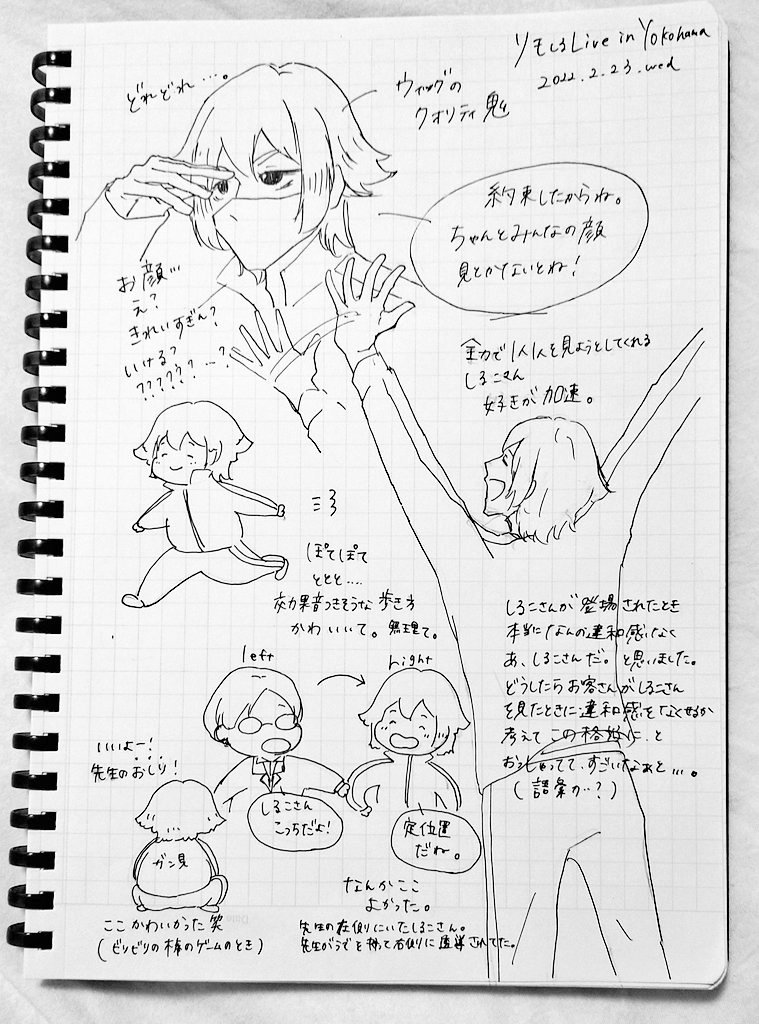 リモしるLive in Yokohama
2022.2.23.wed
どれどれ…。
ウィッグの
クオリティ鬼
約束したからね。
ちゃんとみんなの顔
見とかないとね!
お顔…
え?
きれいすぎん?
いける?
??????…?
全力で1人1人を見ようとしてくれる
しるこさん
好きが加速。
ぽてぽて
ととと….
効果音つきそうな歩き方
かわいいて。無理て。
しるこさんが登場されたとき
本当になんの違和感もなく
あ、しるこさんだ。と思いました。
どうしたらお客さんがしるこさん
を見たときに違和感をなくせるか
考えてこの格好に と
おっしゃってて、すごいなぁと…。
(語彙が…?)
left
right
しるこさん
こっちだよ!
定位置
だね。
いいよー!
先生のおしり!
ガン見
ここかわいかった笑
(ビリビリの棒のゲームのとき)
なんかここ
よかった。
先生の左側にいたしるこさん。
先生がうでを持って右側に誘導されてた。